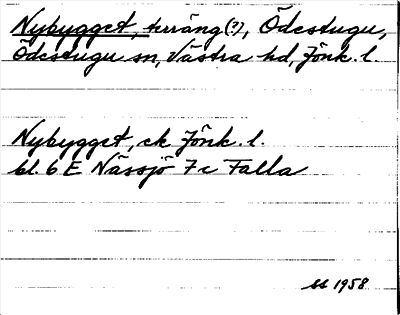 Nybygget, terräng(?), Ödestugu,
Ödestugu sn, Västra hd, Jönk. l.
Nybygget, ek Jönk. l.
bl. 6 E Nässjö 7c Falla
1958